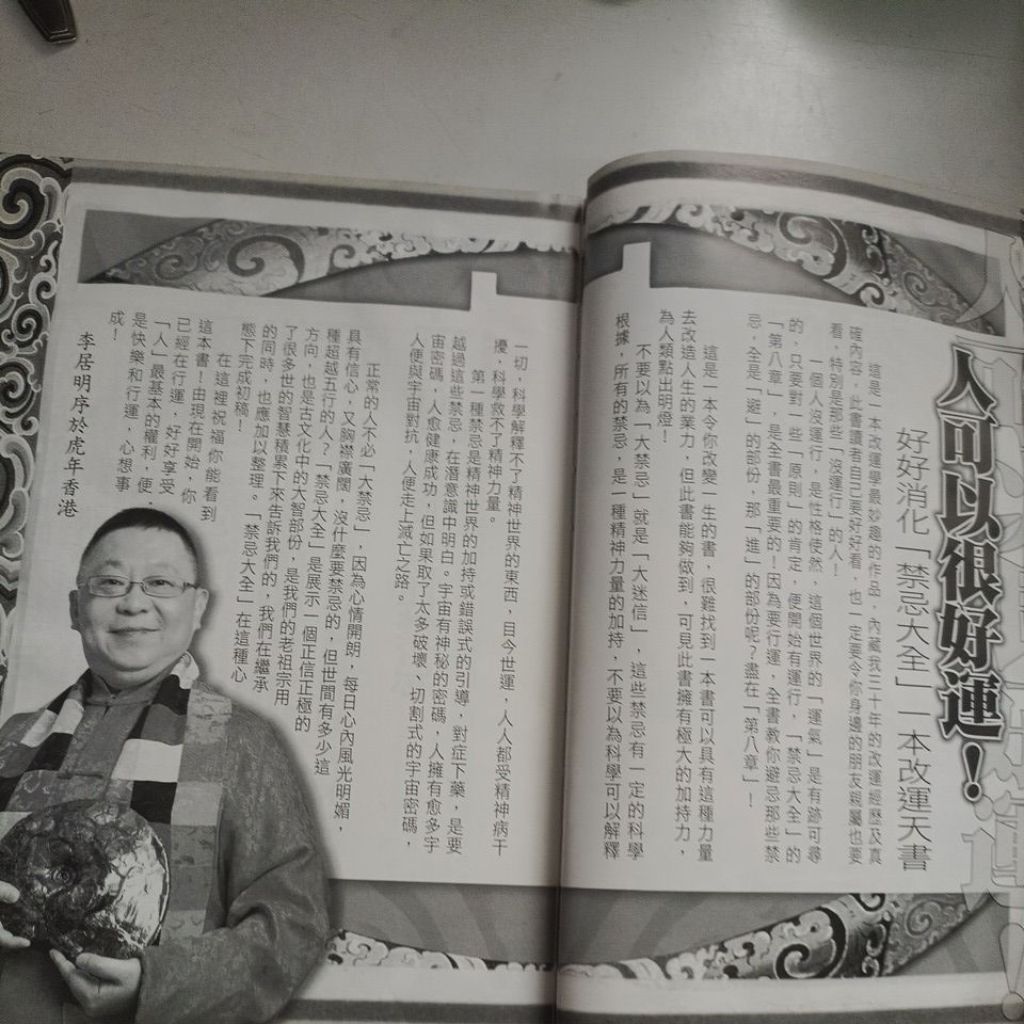 人可以很好運！
好好消化「禁忌大全」一本改運天書
這是一本改運學最妙趣的作品，內藏我三十年的改運經歷及真
確內容，此書讀者自己要好好看，也一定要令你身邊的朋友親屬也要
看，特別是那些「沒運行」的人！
一個人沒運行，是性格使然，這個世界的「運氣」是有跡可尋
的，只要對一些「原則」的肯定，便開始有運行，「禁忌大全」的
「第八章」，是全書最重要的！因為要行運，全書教你避忌那些禁
忌，全是「避」的部份，那「進」的部份呢？盡在「第八章」！
這是一本令你改變一生的書，很難找到一本書可以具有這種力量
去改造人生的業力，但此書能夠做到，可見此書擁有極大的加持力，
為人類點出明燈！
不要以為「大禁忌」就是「大迷信」，這些禁忌有一定的科學
根據，所有的禁忌，是一種精神力量的加持，不要以為科學可以解釋
一切，科學解釋不了精神世界的東西，目今世運，人人都受精神病干
擾，科學救不了精神力量。
第一種禁忌是精神世界的加持或錯誤式的引導，對症下藥，是要
越過這些禁忌，在潛意識中明白。宇宙有神秘的密碼，人擁有愈多宇
宙密碼，人愈健康成功，但如果取了太多破壞、切割式的宇宙密碼，
人便與宇宙對抗，人便走上滅亡之路。
正常的人不必「大禁忌」，因為心情開朗，每日心內風光明媚，
具有信心，又胸襟廣闊，沒什麼要禁忌的，但世間有多少這
種超越五行的人？「禁忌大全」是展示一個正信正極的
方向，也是古文化中的大智部份，是我們的老祖宗用
了很多世的智慧積累下來告訴我們的，我們在繼承
的同時，也應加以整理。「禁忌大全」在這種心
態下完成初稿！
在這裡祝福你能看到
這本書！由現在開始，你
已經在行運，好好享受
「人」最基本的權利，便
是快樂和行運，心想事
成！
李居明序於虎年香港